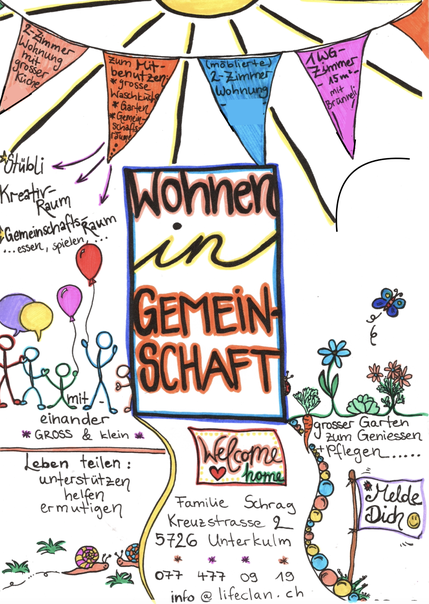 2-Zimmer
Wohnung
mit
grosser
Küche
zum Mit-
benutzen:
* grosse
Waschküche
* Garten
* Gemein-
schafts-
räume
(möblierte)
2-Zimmer
Wohnung
1 WG-
Zimmer
- 15m² -
mit
Brünneli
* Stübli
Kreativ-
Raum
* Gemeinschafts-Raum
...essen, spielen,...
Wohnen
in
GEMEIN-
SCHAFT
mit-
einander
* GROSS & klein *
Leben teilen:
unterstützen
helfen
ermutigen
Welcome
home
Familie Schrag
Kreuzstrasse 2
5726 Unterkulm
* * * *
077 477 09 19
info @ lifeclan.ch
grosser Garten
zum Geniessen
+ Pflegen.....
* Melde
Dich